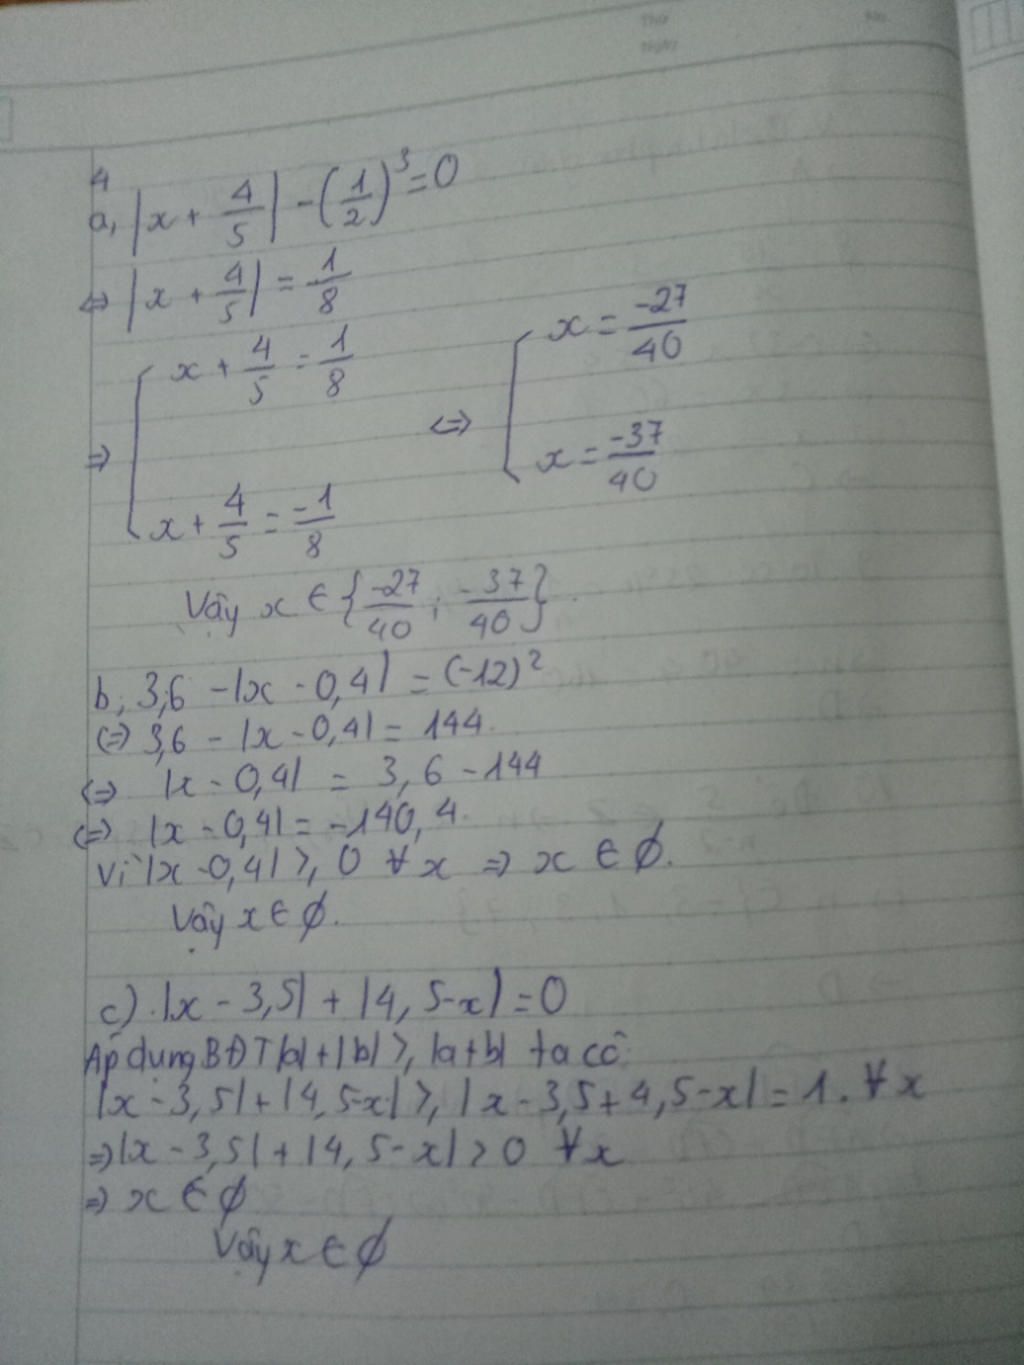 Thứ
No.
Ngày
4
a, |x + 4/5| - (1/2)³ = 0
⇔ |x + 4/5| = 1/8
⇒ [ x + 4/5 = 1/8 ⇔ [ x = -27/40
x + 4/5 = -1/8 x = -37/40
Vậy x ∈ {-27/40 ; -37/40}.
b, 3,6 - |x - 0,4| = (-12)²
(⇒) 3,6 - |x - 0,4| = 144.
⇔ |x - 0,4| = 3,6 - 144
⇔ |x - 0,4| = -140,4.
Vì |x - 0,4| ≥ 0 ∀x ⇒ x ∈ ∅.
Vậy x ∈ ∅.
c) |x - 3,5| + |4,5-x| = 0
Áp dụng BĐT |a| + |b| ≥ |a+b| ta có:
|x - 3,5| + |4,5-x| ≥ |x - 3,5 + 4,5-x| = 1. ∀x
⇒ |x - 3,5| + |4,5-x| > 0 ∀x
⇒ x ∈ ∅
Vậy x ∈ ∅